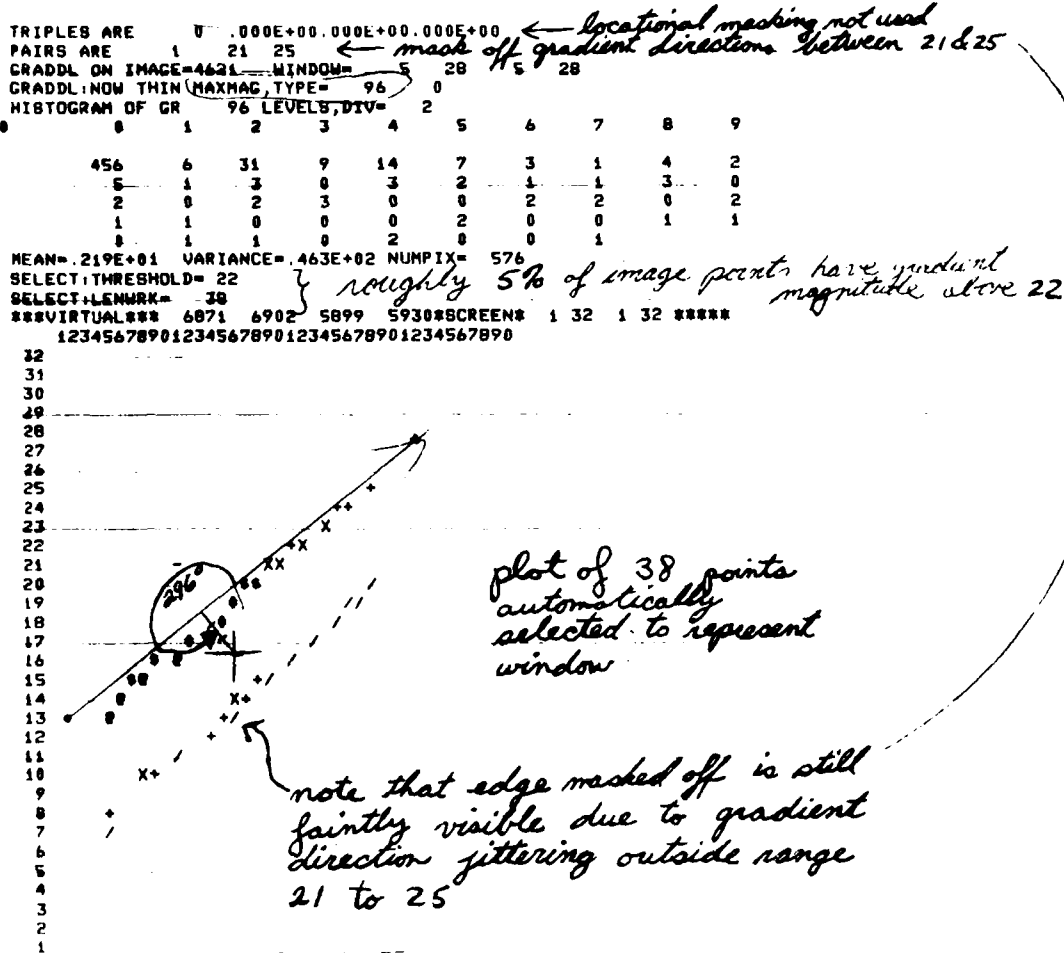 TRIPLES ARE 0 .000E+00.000E+00.000E+00 ← locational masking not used
PAIRS ARE 1 21 25 ← mask off gradient directions between 21 & 25
GRADDL ON IMAGE=4621 WINDOW= 5 28 5 28
GRADDL:NOW THIN MAXMAG,TYPE= 96 0
HISTOGRAM OF GR 96 LEVELS,DIV= 2
0 1 2 3 4 5 6 7 8 9
456 6 31 9 14 7 3 1 4 2
5 1 3 0 3 2 1 1 3 0
2 0 2 3 0 0 2 2 0 2
1 1 0 0 0 2 0 0 1 1
0 1 1 0 2 0 0 1
MEAN=.219E+01 VARIANCE=.463E+02 NUMPIX= 576
SELECT:THRESHOLD= 22
SELECT:LENWRK= 38
roughly 5% of image points have gradient
magnitude above 22
***VIRTUAL*** 6871 6902 5899 5930*SCREEN* 1 32 1 32 *****
123456789012345678901234567890
32
31
30
29
28
27
26
25 +
24 ++
23 X
22 +X
21 XX
20
19 //
18 /
17
16 /
15 +/
14 X+
13 +/
12 +
11 /
10 X+
9
8 +
7 /
6
5
4
3
2
1
296°
plot of 38 points
automatically
selected to represent
window
note that edge masked off is still
faintly visible due to gradient
direction jittering outside range
21 to 25